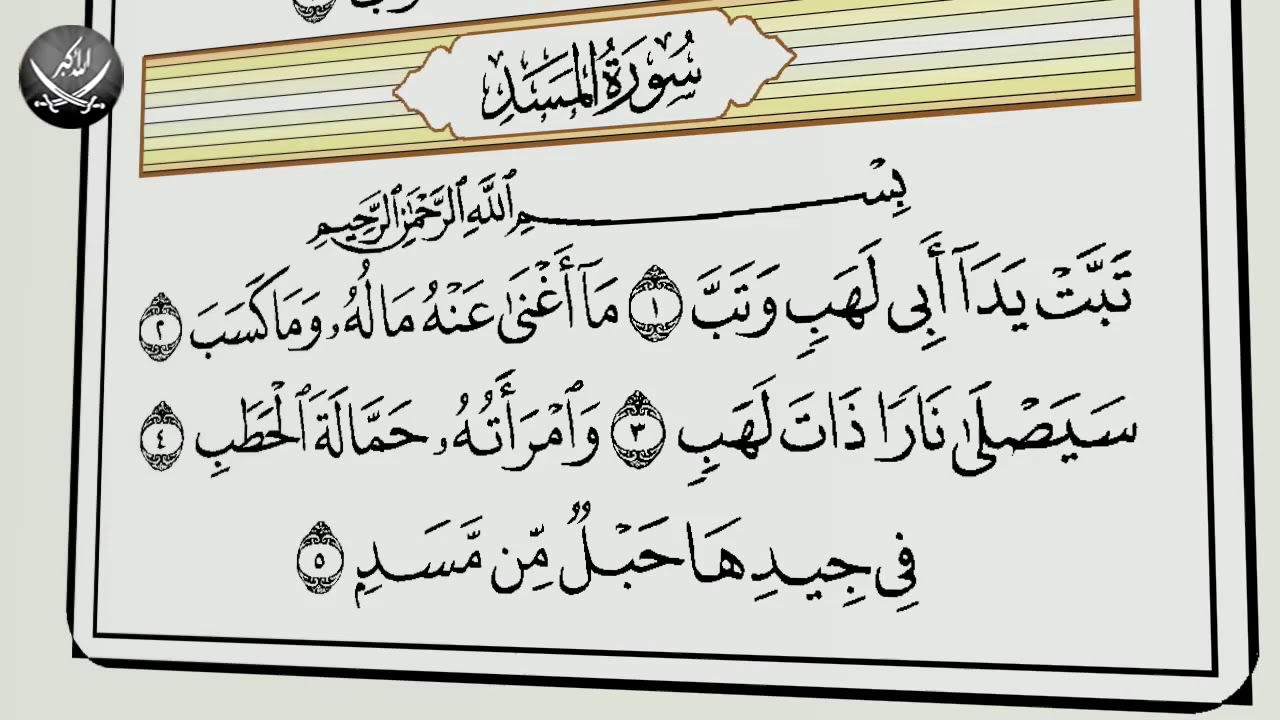 سُورَةُ الْمَسَدِ
بِسْمِ ٱللَّهِ ٱلرَّحْمَٰنِ ٱلرَّحِيمِ
تَبَّتْ يَدَآ أَبِى لَهَبٍ وَتَبَّ ١ مَآ أَغْنَىٰ عَنْهُ مَالُهُۥ وَمَا كَسَبَ ٢
سَيَصْلَىٰ نَارًا ذَاتَ لَهَبٍ ٣ وَٱمْرَأَتُهُۥ حَمَّالَةَ ٱلْحَطَبِ ٤
فِى جِيدِهَا حَبْلٌ مِّن مَّسَدٍ ٥
الله أكبر